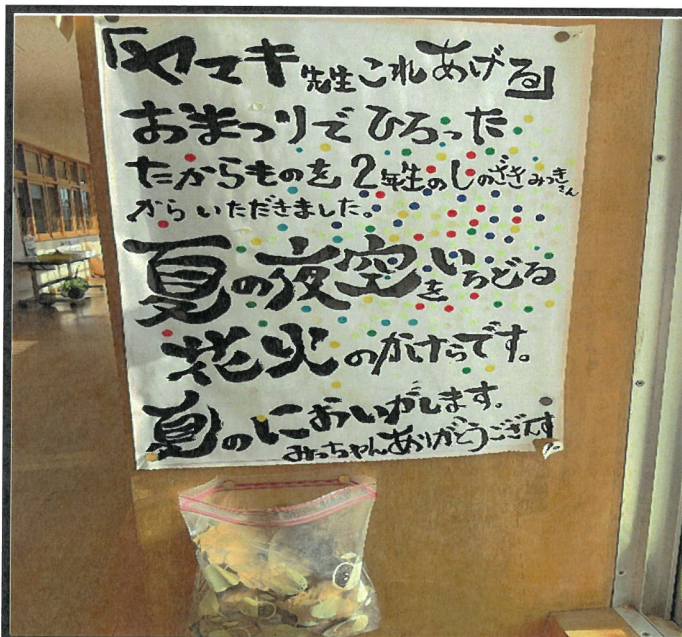 「ヤマキ先生これあげる」
おまつりでひろった
たからものを2年生のしのざきみつきさん
からいただきました。
夏の夜空をいろどる
花火のかけらです。
夏のにおいがします。
みっちゃんありがとうございます。